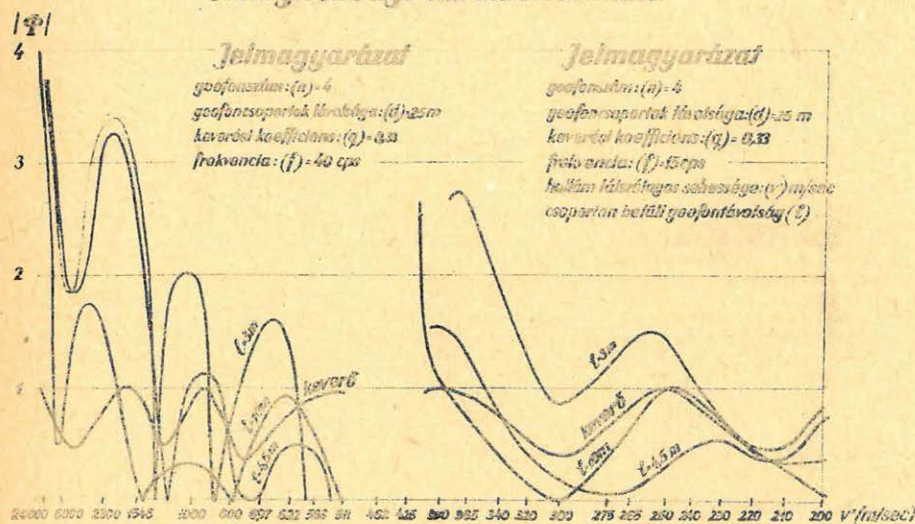 |Φ|
4
3
2
1
Jelmagyarázat
geofonszám: (n) = 4
geofoncsoportok távolsága: (d) = 25 m
keverési koefficiens: (q) = 0,33
frekvencia: (f) = 40 cps
Jelmagyarázat
geofonszám: (n) = 4
geofoncsoportok távolsága: (d) = 25 m
keverési koefficiens: (q) = 0,33
frekvencia: (f) = 15 cps
hullám látszólagos sebessége: (v') m/sec
csoporton belüli geofontávolság (ℓ)
ℓ=3m
ℓ=10m
keverő
ℓ=4,5m
ℓ=3m
keverő
ℓ=10m
ℓ=4,5m
1000 800 697 622 511 340 320 300 275 265 250 240 230 220 210 200 v' (m/sec)